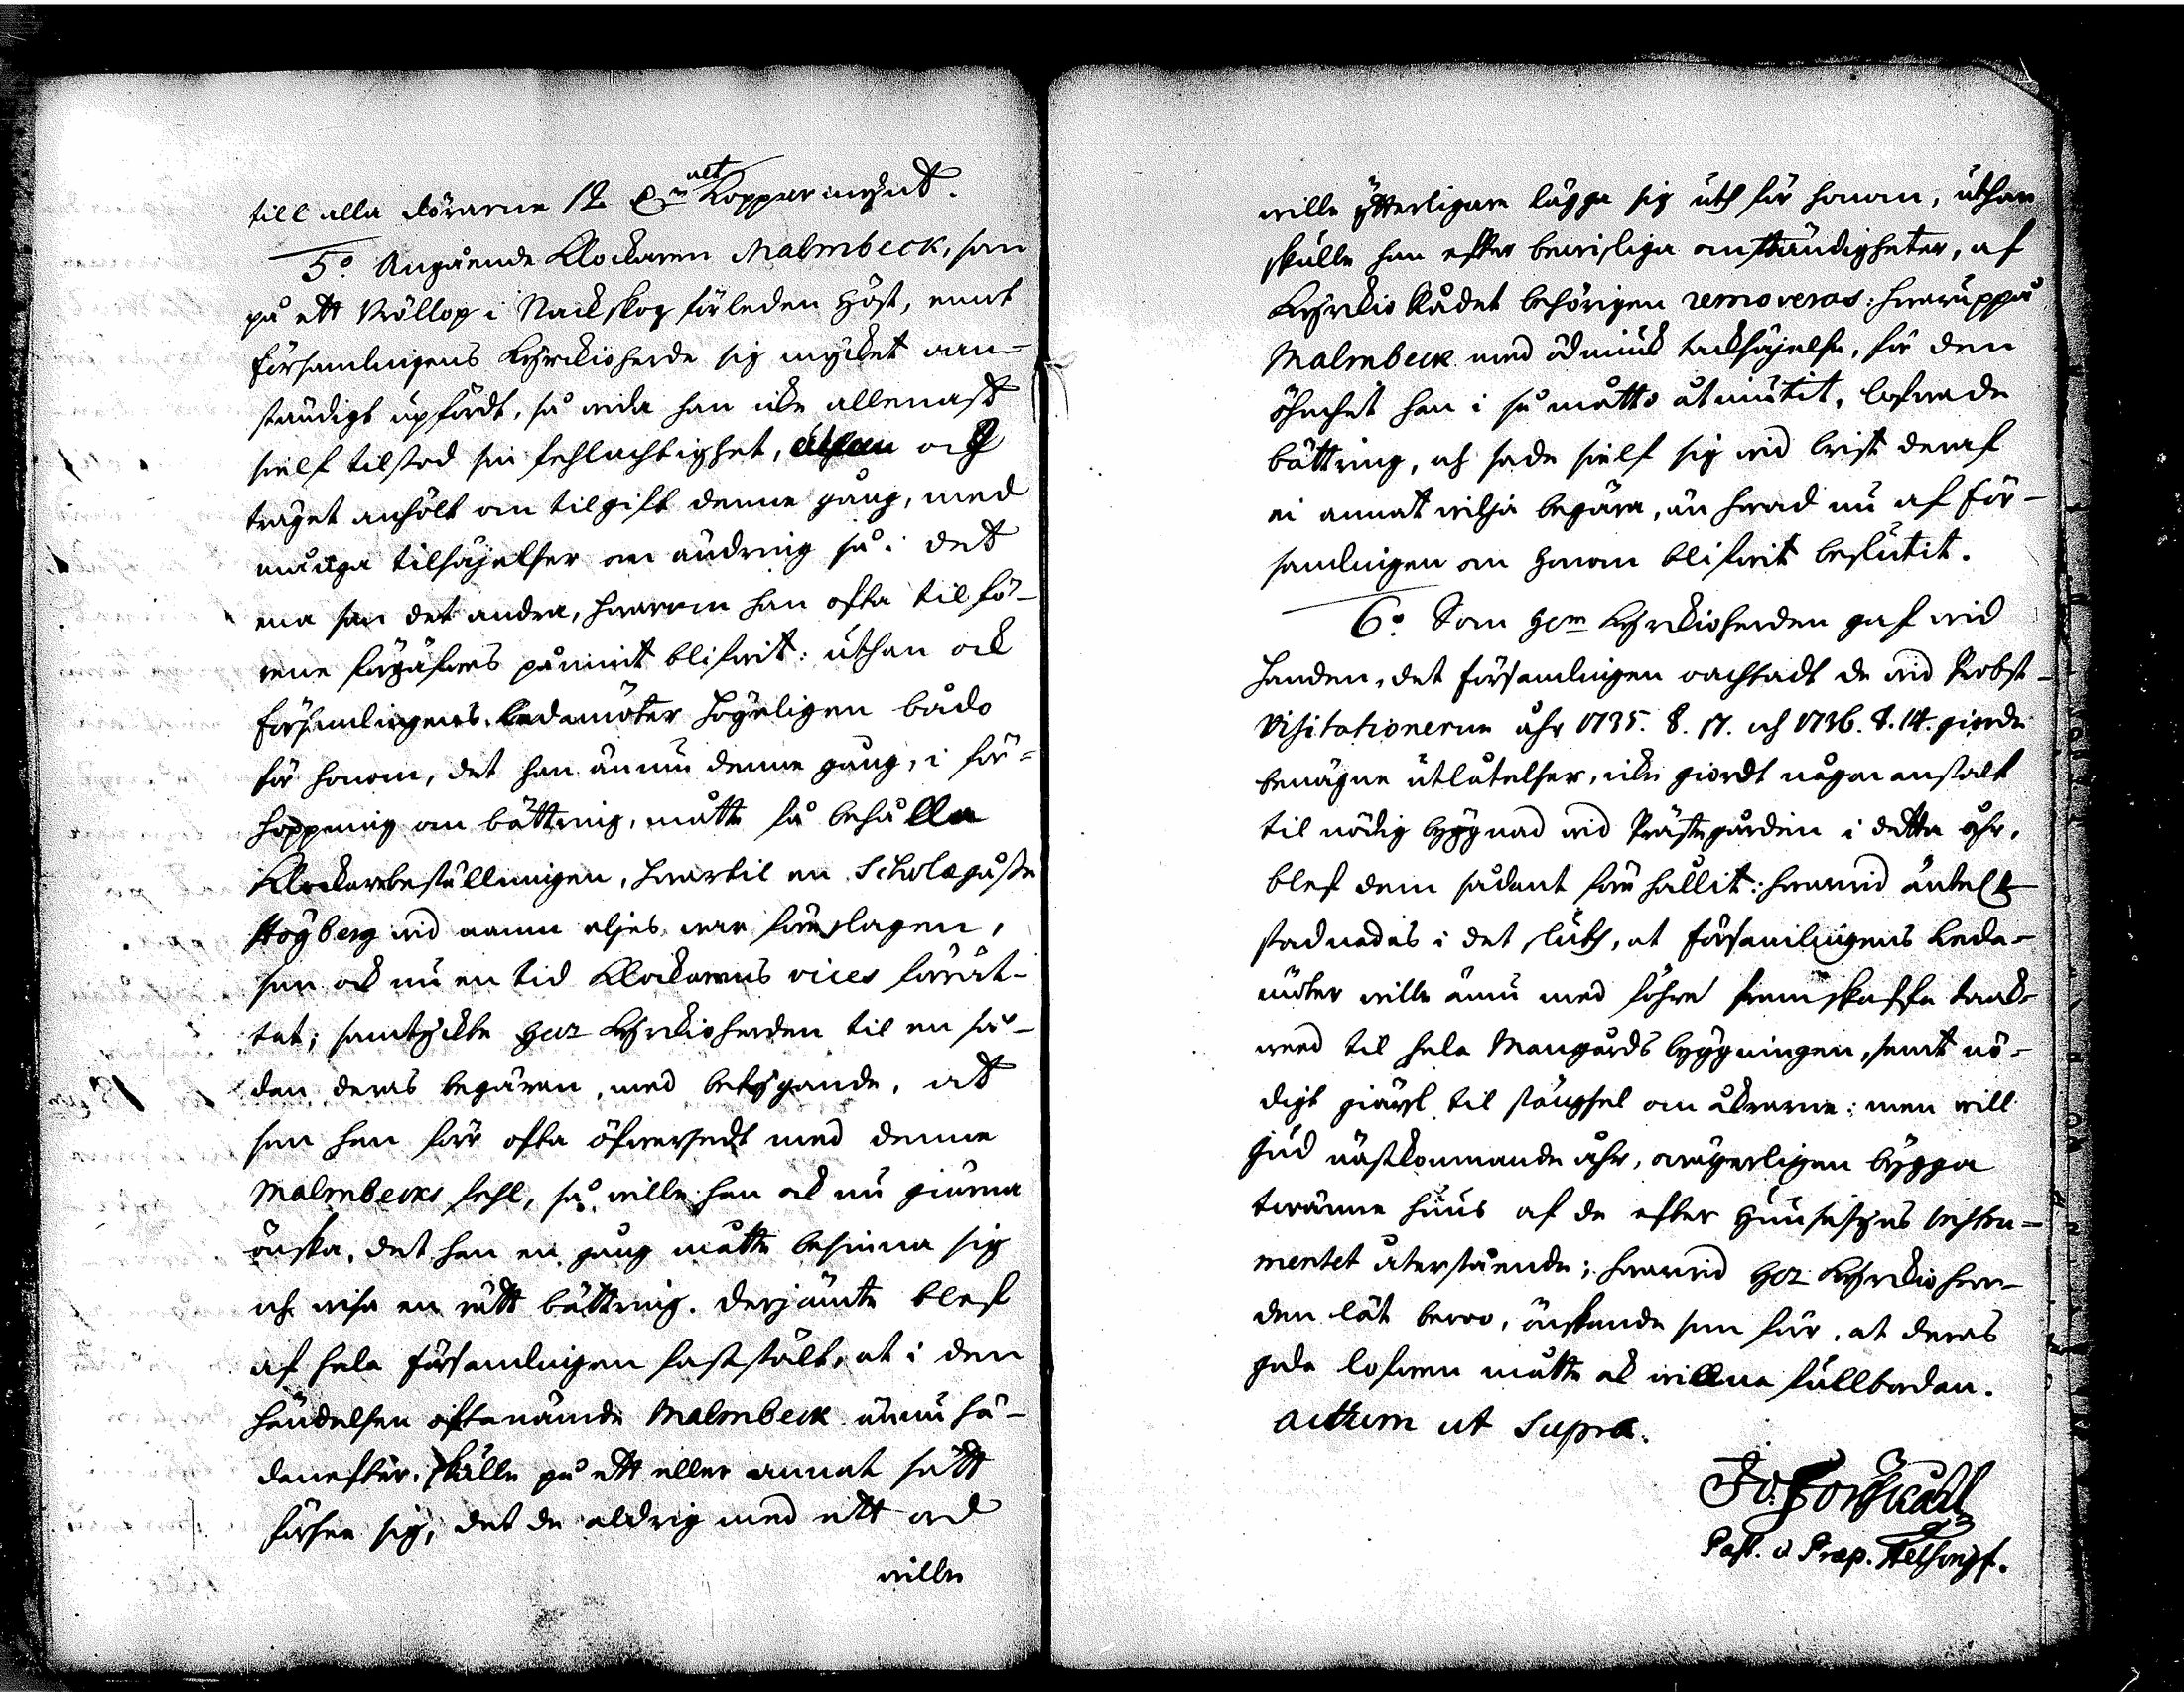 till alla dörarne 12 Dlr alt Kopparmynt.
5:o Angående Klockaren Malmbeck, som
på ett Bröllop i Nackskog förleden Höst, emot
församlingens Kyrckioherde sig mycket oan-
ständigt upfördt, så enda han icke allenast
sielf tilstod sin fehlachtighet, uthan och
träget anhölt om tilgift denne gång, med
många tilsäjelser om ändring så i det
ena som det andra, hwarom han ofta tilfö-
rene förgäfwes påmint blifwit: uthan ock
församlingens Ledamöter högeligen bådo
för honom, det han ännu denne gång, i för-
hoppning om bättring, måtte få behålla
Klockarebeställningen, hwartil en Scholægosse
Högberg wid namn eljes war föreslagen,
som ock nu en tid Klockarens vices förrät-
tat; samtyckte Her Kyrckioherden til en så-
dan deras begäran, med betygande, att
som han förr ofta öfwersedt med denne
Malmbecks fehl, så wille han ock nu gierna
önska, det han en gång måtte besinna sig
och wisa en rätt bättring. Derjämte blef
af hela församlingen fastställt, at i den
händelsen oftanämde Malmbeck ännu hä-
danefter, skulle på ett eller annat sätt
förse sig, det de aldrig med ett ord
wille
wille ytterligare lägga sig uth för honom, uthan
skulle han efter bewisliga omständigheter, af
Kyrckio Rådet behörigen removeras: hwaruppå
Malmbeck med ödmiuk tacksäjelse, för den
ömhet han i så måtto åtniutit, lofwade
bättring, och sade sielf sig wid brist deraf
ei annat wilja begära, än hwad nu af för-
samlingen om honom blifwit beslutit.
6:o Som Her Kyrckioherden gaf wid
handen, det församlingen oachtadt de wid Probst-
Visitationerne åhr 1735. §. 17. och 1736. §. 14. giorde
benägne utlåtelser, icke giordt någon anstalt
til nödig byggnad wid Prästegården i detta åhr,
blef dem sådant förehållit: hwarwid äntel.
stadnades i det sluth, at församlingens Leda-
möter wille ännu med föhre framskaffa taak-
weed til hela Mangårds byggningen, samt nö-
digt giärsl til stängsel om åkrarne: men will
Gud nästkommande åhr, owägerligen bygga
twänne huus af de efter Huusesyns Instru-
mentet återstående; hwarwid Her Kyrckioher-
den lät bero, önskande som förr, at deras
goda lofwen måtte ock willena fullborda.
actum ut supra.
Jo. Forsskåhl
Past. & Præp. Helsingf.